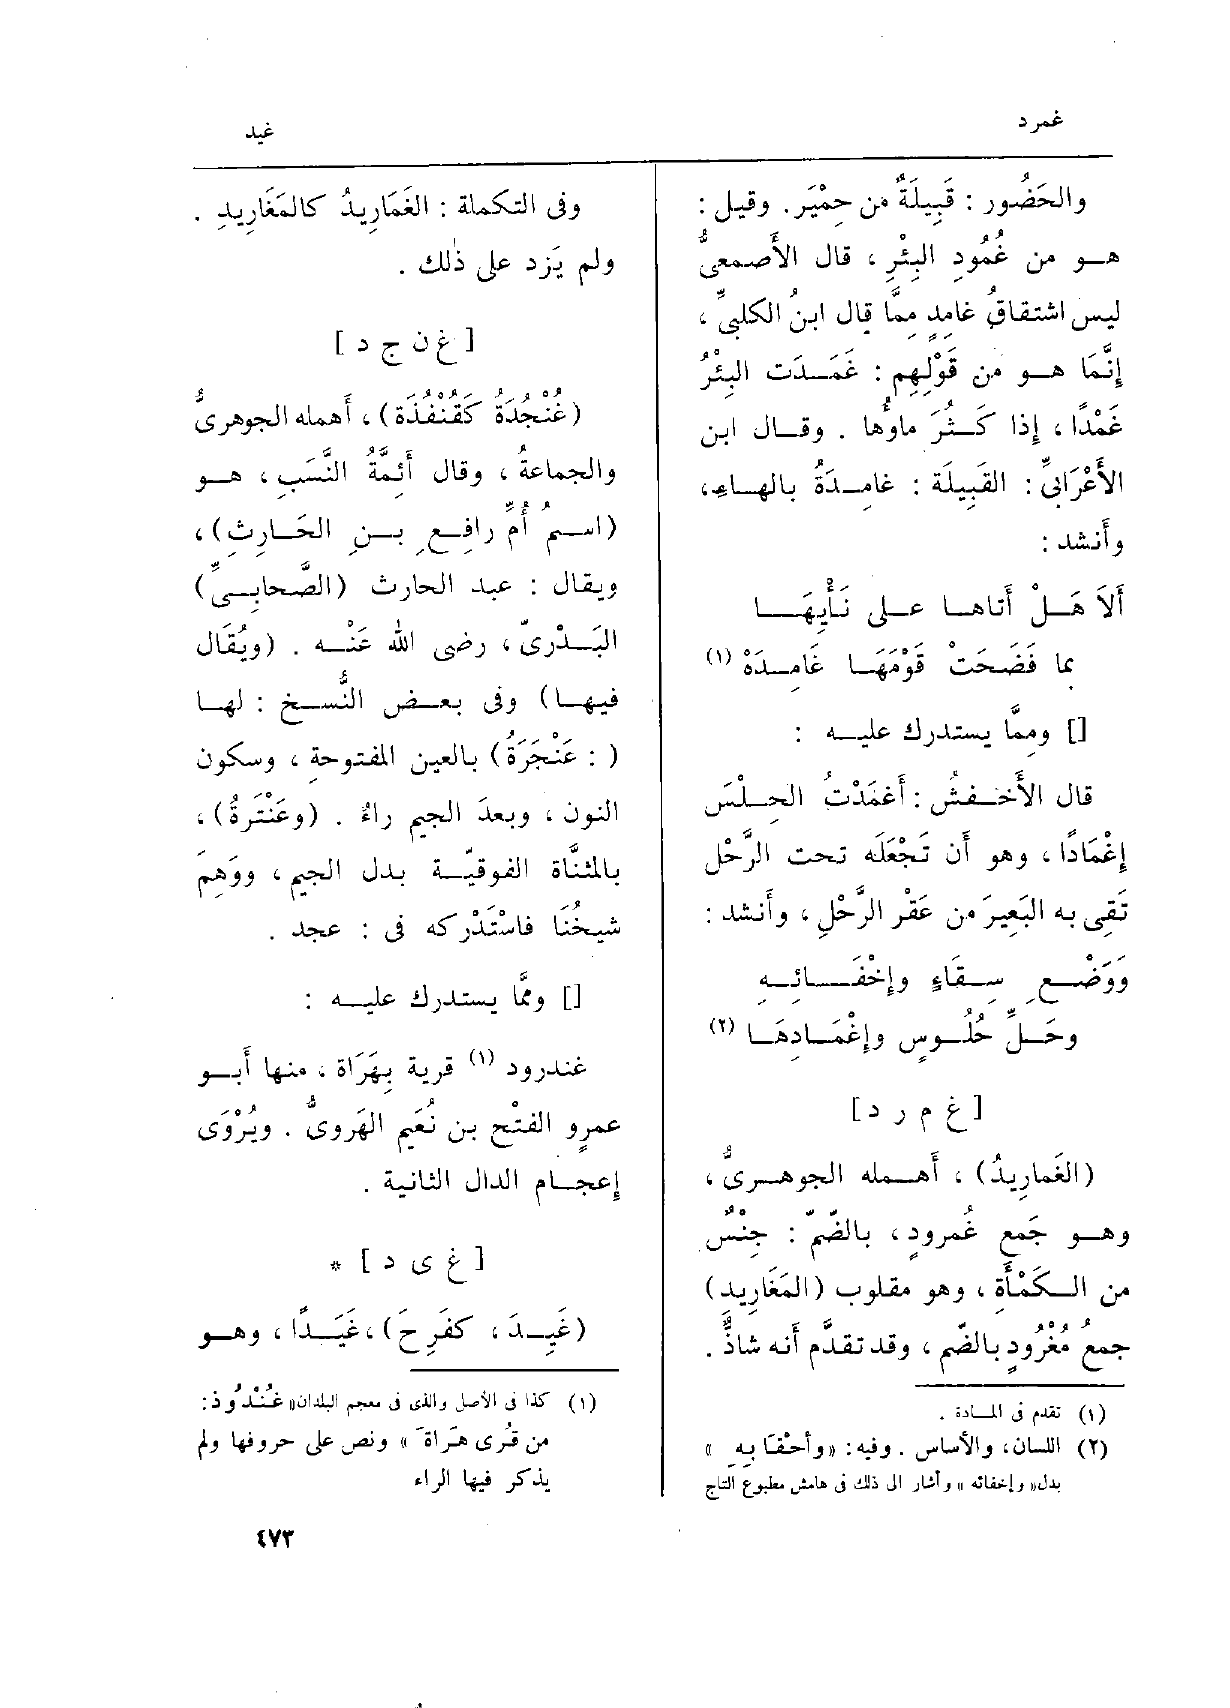 غمرد
غيد
والحَضُور : قَبِيلَةٌ من حِمْيَر. وقيل :
هـو من غُمُودِ البِئْرِ ، قال الأَصمعىُّ
ليس اشتقاقُ غامِدٍ ممَّا قال ابنُ الكلبىِّ ،
إِنَّمَا هـو من قَوْلِهِم : غَمَـدَت البِئْرُ
غَمْدًا ، إذا كَـثُرَ ماؤُها . وقـال ابن
الأَعْرَابىِّ : القَبِيلَة : غامِـدَةُ بالهـاءِ،
وأَنشد :
أَلاَ هَـلْ أَتاهـا علـى نَـأْيِهَـا
بما فَضَحَتْ قَوْمَهَـا غَامِـدَهْ (١)
[] وممَّا يستدرك عليـه :
قال الأَخـفشُ : أَغمَدْتُ الحِلْسَ
إِغْمَادًا ، وهو أَن تَجْعَلَه تحت الرَّحْل
تَقِى به البَعِيرَ من عَقْر الرَّحْلِ ، وأَنشد :
وَوَضْـعِ سِـقَاءٍ وإِخْفَـائِـهِ
وحَـلِّ حُلُـوسٍ وإِغْمَـادِهَـا (٢)
[ غ م ر د ]
(الغَمارِيدُ) ، أَهـمله الجوهـرىُّ ،
وهـو جَمع غُمرودٍ ، بالضّمّ : جِنْسٌ
من الـكَمْأَةِ ، وهو مقلوب (المَغَارِيد)
جمعُ مُغْرُودٍ بالضّم ، وقد تقدَّم أنه شاذٌّ .
(١) تقدم فى المـادة .
(٢) اللسان، والأساس . وفيه : «وأحْقَابِهِ »
بدل« وإخفائه » وأشار الى ذلك فى هامش مطبوع التاج
وفى التكملة : الغَمَارِيدُ كالمَغَارِيدِ .
ولم يَزِد على ذٰلك .
[ غ ن ج د ]
(غُنْجُدَةُ كَقُنْفُذَة) ، أَهمله الجوهرىُّ
والجماعةُ ، وقال أَئِمَّةُ النَّسَبِ ، هـو
(اسـمُ أُمِّ رافِـعِ بـنِ الحَـارِثِ) ،
ويقال : عبد الحارث (الصَّحابِـىِّ)
البَـدْرِىّ ، رضى الله عَنْـه . (ويُقَال
فيهـا) وفى بعـض النُّسـخ : لهـا
( : عَنْجَرَةُ) بالعين المفتوحةِ ، وسكون
النون ، وبعدَ الجيم راءٌ . (وعَنْتَرةُ) ،
بالمثنَّاة الفوقيّـة بدل الجيم ، ووَهِمَ
شيخُنَا فاسْتَدْركه فى : عجد .
[] وممَّا يستدرك عليـه :
غندرود (١) قرية بِهَرَاة ، منها أَبـو
عمرٍو الفتْح بن نُعَيم الهَروىُّ . ويُرْوَى
إِعجـام الدال الثانية .
[ غ ى د ] *
(غَيِـدَ ، كفَرِحَ) ، غَيَـدًا ، وهـو
(١) كذا فى الأصل والذى فى معجم البلدان« غُنْدُوذ :
من قُرى هَرَاة » ونص على حروفها ولم
يذكر فيها الراء
٤٧٣